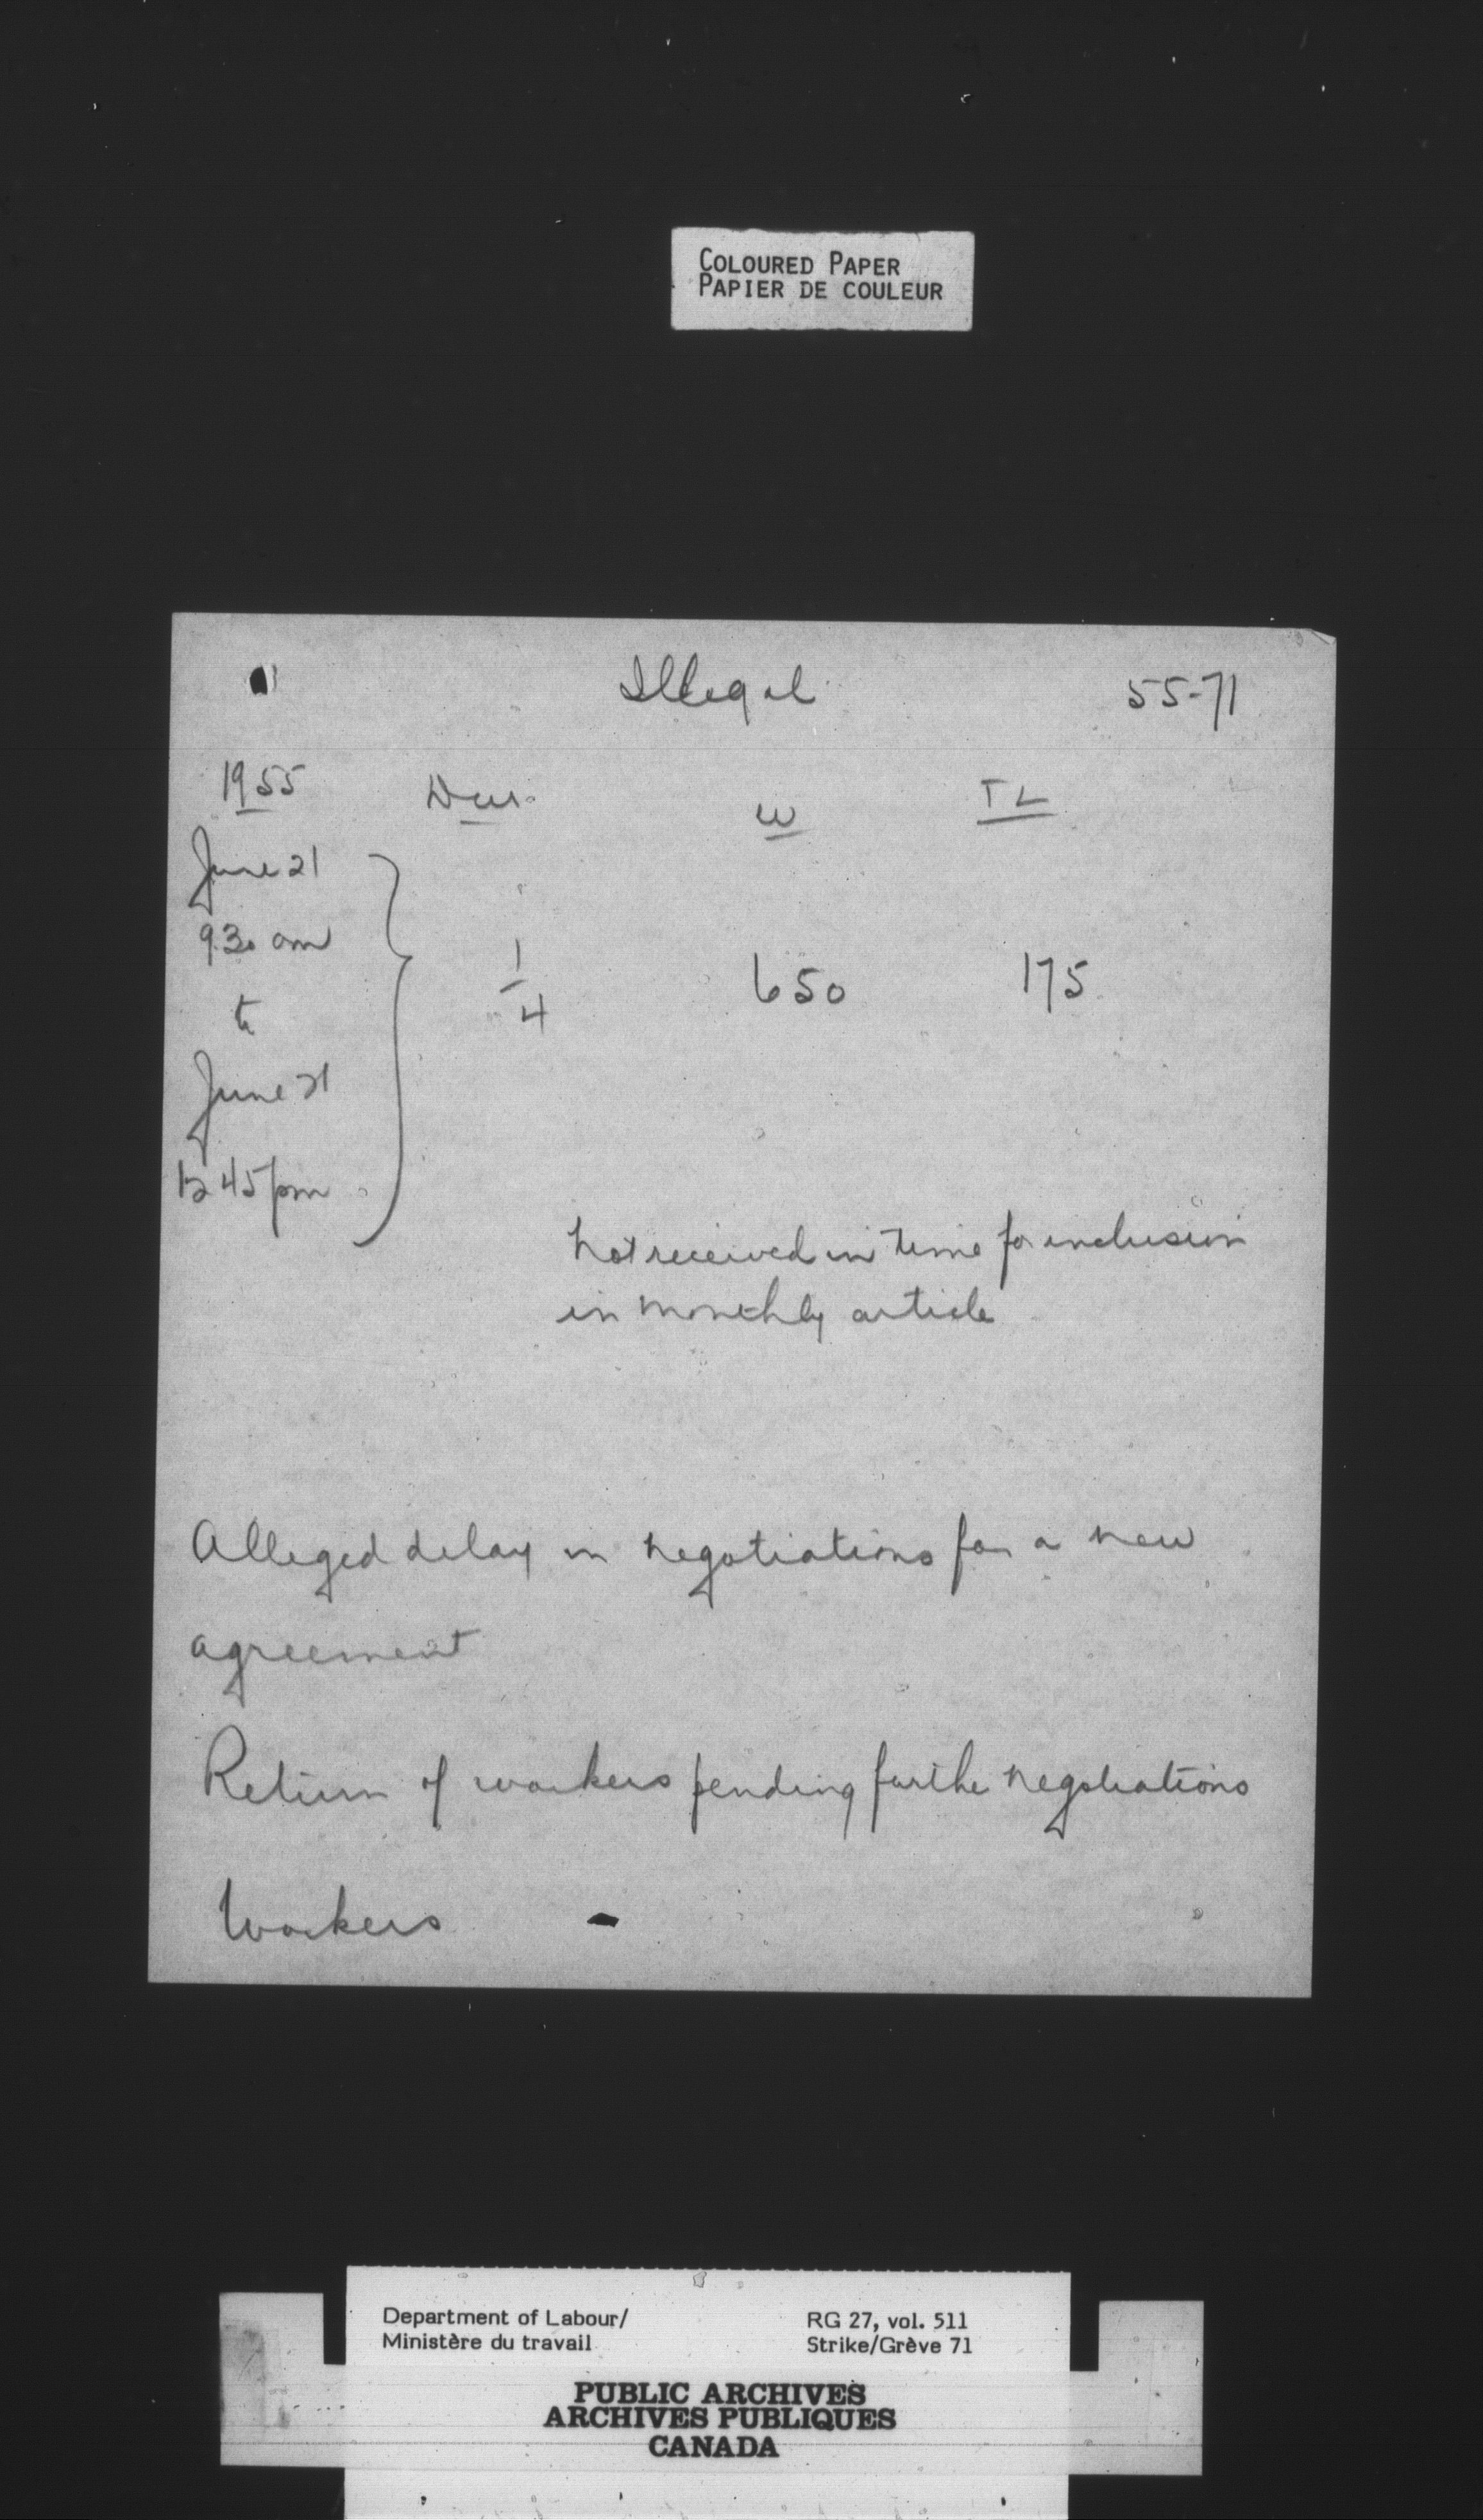 COLOURED PAPER
PAPIER DE COULEUR
Illegal 55-71
1955 Dur. W TL
June 21
9.30 am
1/4 650 175
to
June 21
12 45 pm
Not received in time for inclusion
in monthly article
Alleged delay in negotiations for a new
agreement
Return of workers pending further negotiations
Workers -
Department of Labour/ RG 27, vol. 511
Ministère du travail Strike/Grève 71
PUBLIC ARCHIVES
ARCHIVES PUBLIQUES
CANADA